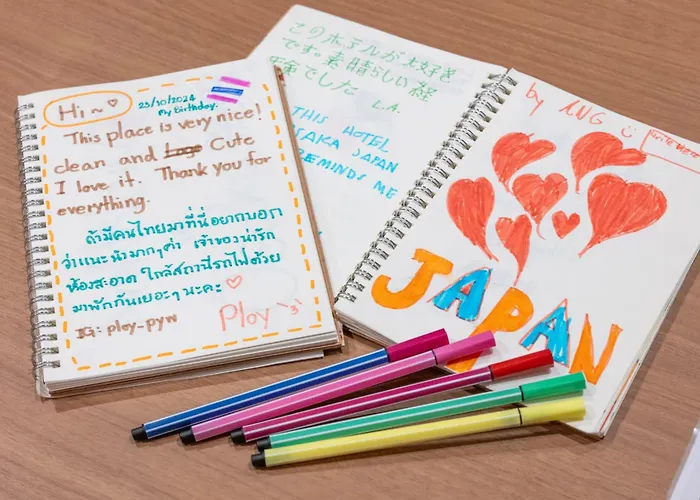 Hi~♡
23/10/2024
My Birthday.
This place is very nice!
clean and Cute
I love it. Thank you for
everything.
ถ้ามีคนไทยมาที่นี่อยากบอก
ว่าแนะนำมากๆค่ำ เจ้าของน่ารัก
ห้องสะอาด ใกล้สถานีรถไฟด้วย
มาพักกันเยอะๆ นะคะ ♡
IG: ploy-pyw
Ploy
このホテルが大好き
です。素晴らしい経
験でした L.A.
THIS HOTEL
SAKA JAPAN
REMINDS ME
by ANG
JAPAN